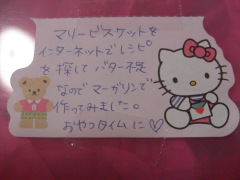 マリービスケットを
インターネットでレシピ
を探して バター不足
なのでマーガリンで
作ってみました。
おやつタイムに♡